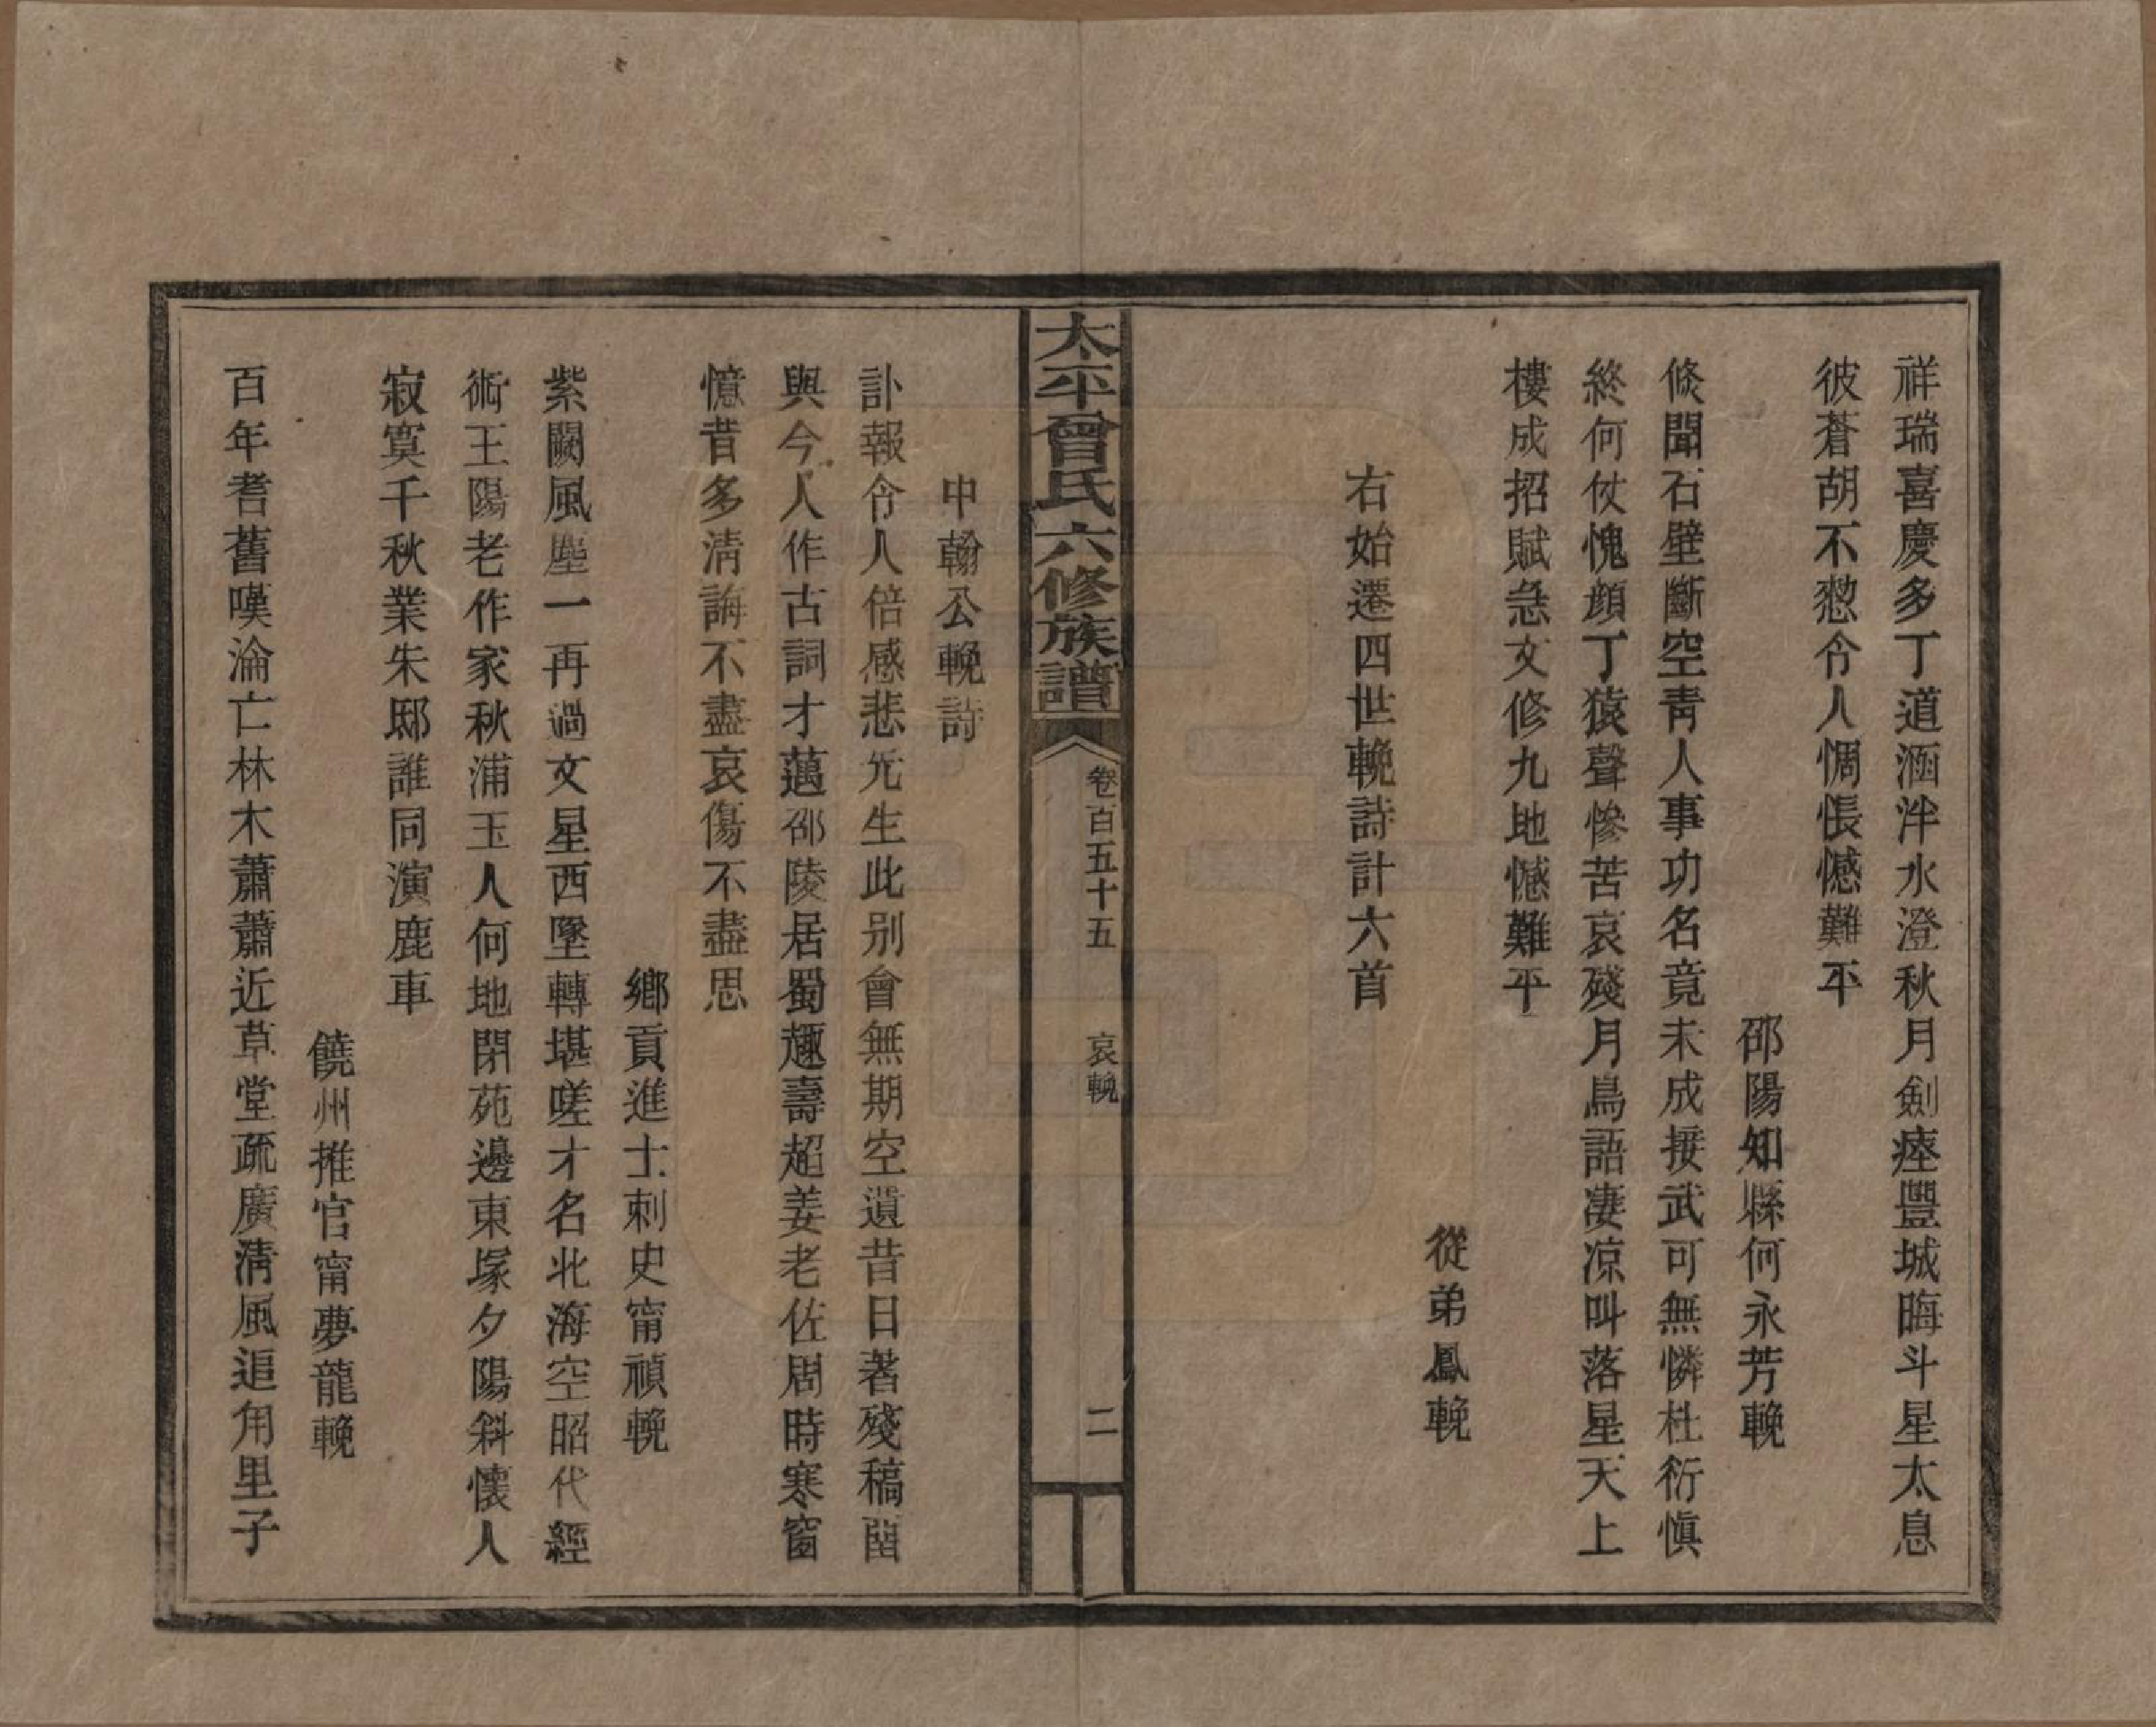 祥瑞喜慶多丁道涵泮水澄秋月劍瘞豐城晦斗星太息
彼蒼胡不憖令人惆悵憾難平
邵陽知縣何永芳輓
倐聞石壁斷空青人事功名竟未成接武可無憐杜衍慎
終何仗愧顔丁猿聲慘苦哀殘月鳥語凄凉叫落星天上
樓成招賦急文修九地憾難平
從弟鳳輓
右始遷四世輓詩計六首
太平曾氏六修族譜
卷百五十五
哀輓
二
中翰公輓詩
訃報令人倍感悲先生此别會無期空遺昔日著殘稿留
與今人作古詞才藹邵陵居蜀趣壽超姜老佐周時寒窗
憶昔多清誨不盡哀傷不盡思
鄉貢進士刺史甯禎輓
紫闕風塵一再過文星西墜轉堪嗟才名北海空昭代經
術王陽老作家秋浦玉人何地閉苑邊東塚夕陽斜懷人
寂寞千秋業朱邸誰同演鹿車
饒州推官甯夢龍輓
百年耆舊嘆淪亡林木蕭蕭近草堂疏廣清風追甪里子